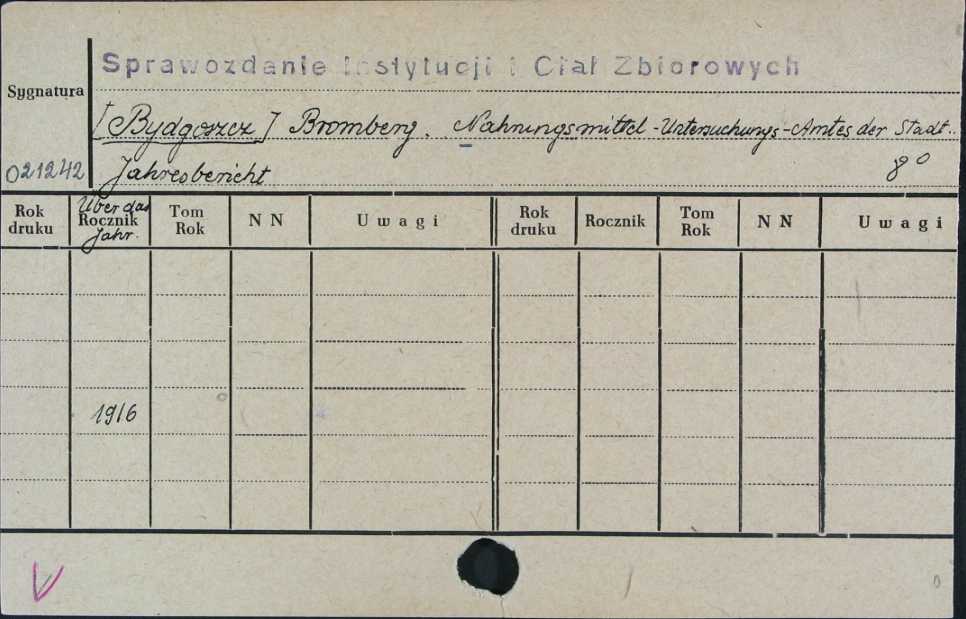 Sprawozdanie Instytucji i Ciał Zbiorowych
Sygnatura
[Bydgoszcz] Bromberg. Nahrungsmittel-Untersuchungs-Amtes der Stadt..
021242
Jahresbericht 8°
Rok druku
Über das Rocznik Jahr.
Tom Rok
N N
Uwagi
Rok druku
Rocznik
Tom Rok
N N
Uwagi
1916